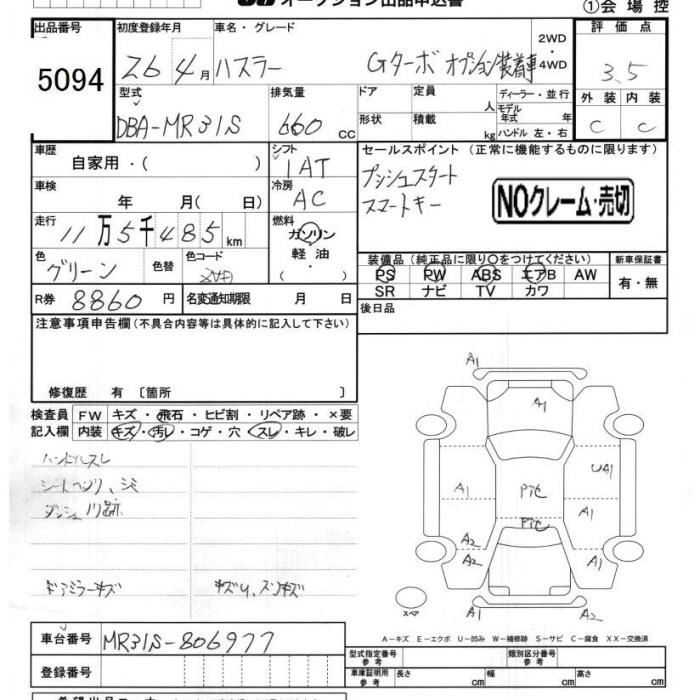 オークション出品申込書
①会場控
出品番号 初度登録年月 車名・グレード 評価点
5094 26年4月 ハスラー Gターボ オプション装着車 2WD・4WD 3.5
型式 排気量 ドア 定員 ディーラー・並行 外装 内装
DBA-MR31S 660cc 形状 積載 人 kg モデル年式 年 ハンドル 左・右 C C
車歴 シフト セールスポイント (正常に機能するものに限ります)
自家用・( ) IAT プッシュスタート
車検 冷房 スマートキー
年 月( 日) AC NOクレーム・売切
走行 燃料
11万5千485km ガソリン・軽油・( )
色 色替 色コード 装備品(純正品に限り○をつけてください) 新車保証書
グリーン PS PW ABS エアB AW 有・無
SR ナビ TV カワ
R券 8860円 名変通知期限 月 日 後日品
注意事項申告欄(不具合内容等は具体的に記入して下さい)
修復歴 有 〔箇所 〕
検査員 FW キズ・飛石・ヒビ割・リペア跡・×要
記入欄 内装 キズ・汚レ・コゲ・穴・スレ・キレ・破レ
ハンドルスレ
シートヘタリ、シミ
ダッシュ
ドアミラーキズ
A1
A1
A1 U4 1
A1 PてC A1
Pてc
A2 A2
A2 A2
スペア A1 A2
A-キズ E-エクボ U-凹み W-補修跡 S-サビ C-腐食 XX-交換済
車台番号 MR31S-806977
型式指定番号 参考 類別区分番号 参考
登録番号
車庫証明用 参考 長さ cm 幅 cm 高さ cm